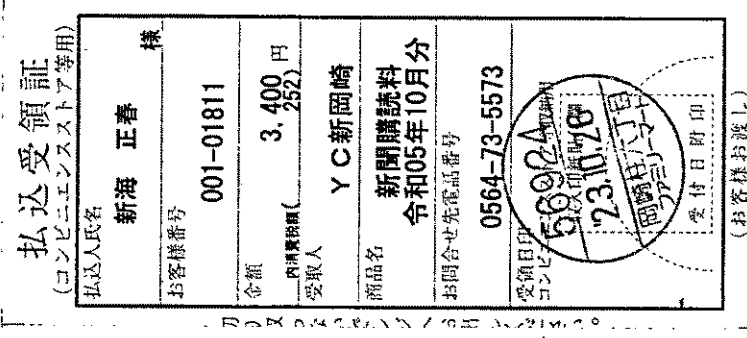 払込受領証
(コンビニエンスストア等用)
払込人氏名
新海 正春 様
お客様番号
001-01811
金額
3,400円
内消費税額( 252)
受取人
YC新岡崎
商品名
新聞購読料
令和05年10月分
お問合せ先電話番号
0564-73-5573
受領日印
コンビニ
56924
'23.10.26
岡崎柱六丁目
ファミリーマート
受付日附印
(お客様お渡し)